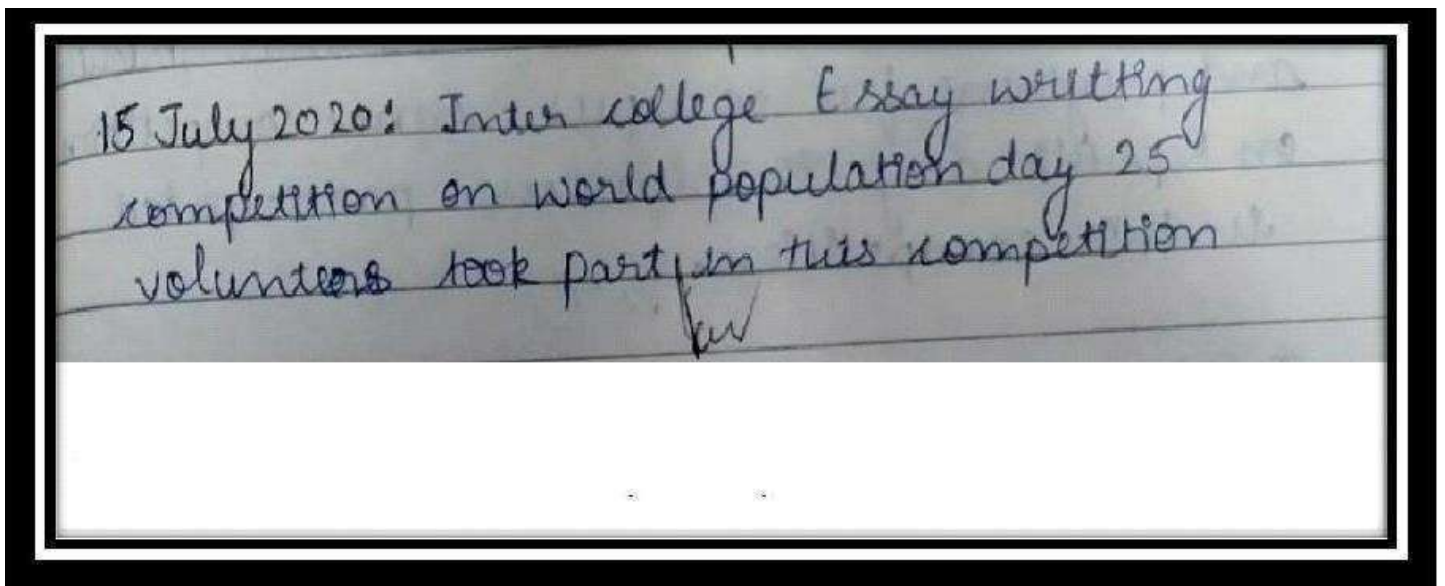 15 July 2020: Inter college Essay writting
competition on world population day 25
volunteers took part in this competition